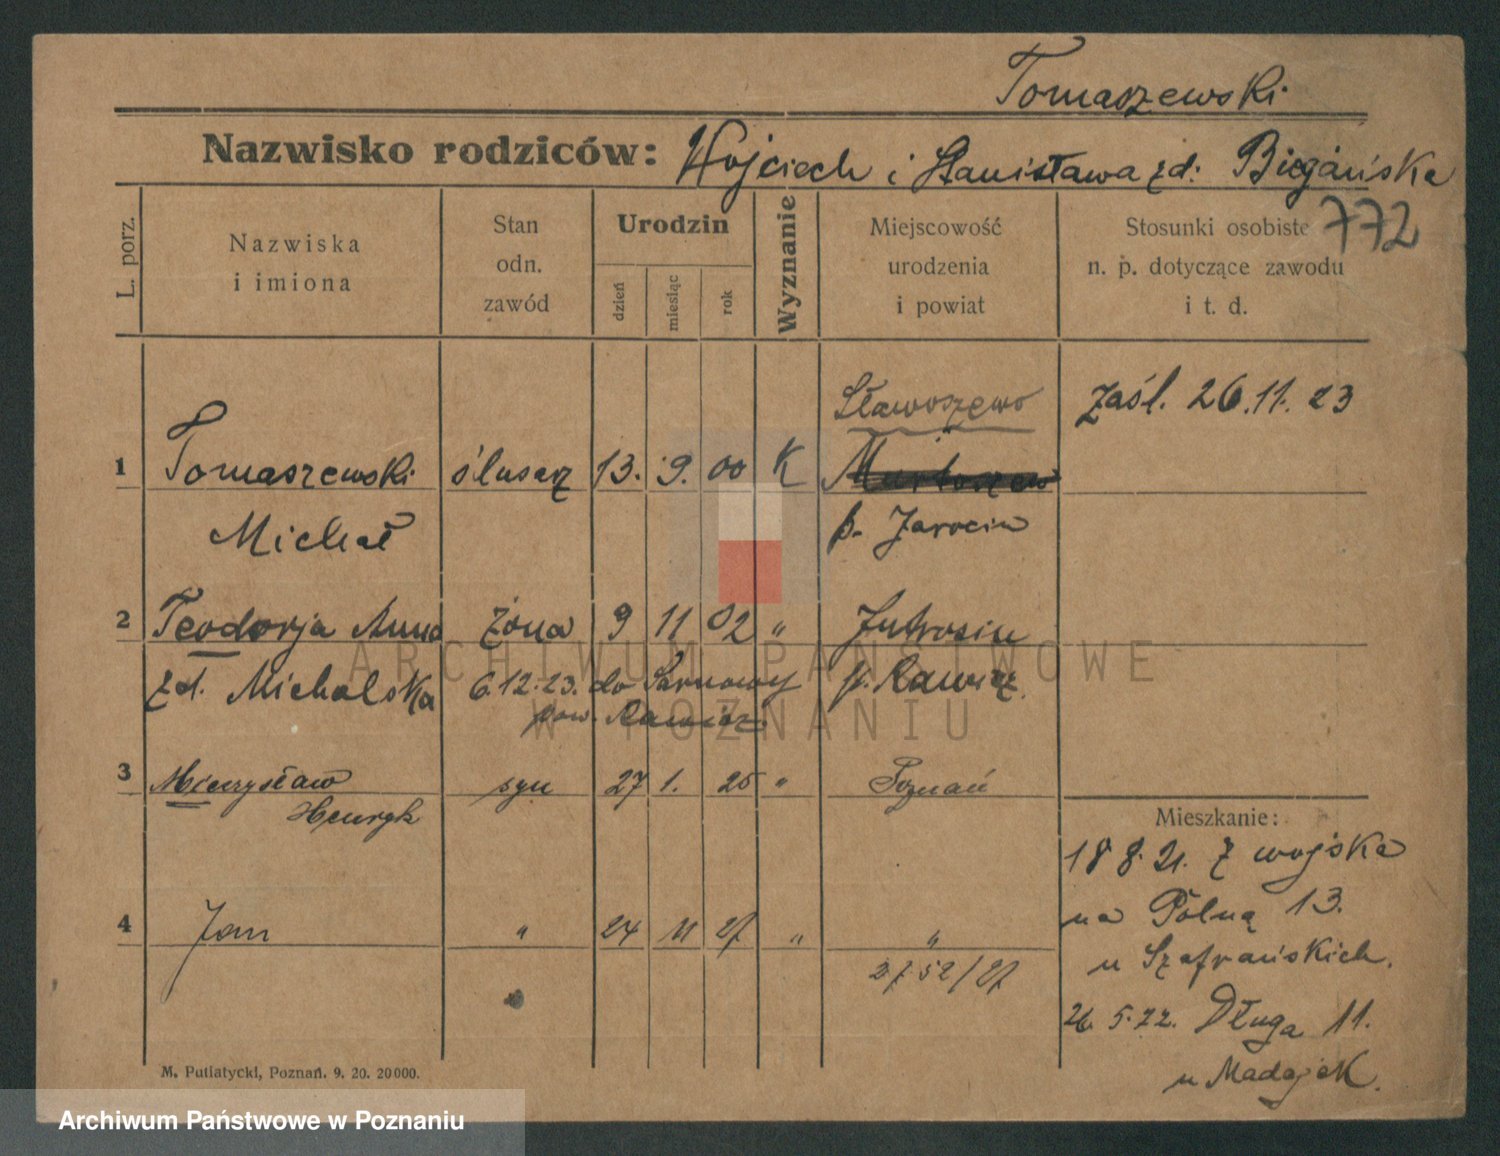 Tomaszewski
Nazwisko rodziców: Wojciech i Stanisława zd: Biegańska
772
L. porz.
Nazwiska
i imiona
Stan
odn.
zawód
Urodzin
dzień
miesiąc
rok
Wyznanie
Miejscowość
urodzenia
i powiat
Stosunki osobiste
n. p. dotyczące zawodu
i t. d.
Sławoszewo
zaśl. 26.11.23
1 Tomaszewski ślusarz 13. 9. 00 K
Michał
p. Jarocin
2 Teodorja Anna żona 9 11 02 " Jutrosin
zd. Michalska 6.12.23. do Sarnowy p. Rawicz
pow. Rawicz.
3 Mieczysław syn 27 1. 25 " Poznań
Henryk
Mieszkanie:
18 8. 21. z wojska
na Pólną 13.
u Szafrańskich.
4 Jan " 24 11 27 " "
2752/27
26 5.22. Długa 11.
u Madajek.
M. Putiatycki, Poznań. 9. 20. 20000.
ARCHIWUM PAŃSTWOWE
W POZNANIU
Archiwum Państwowe w Poznaniu